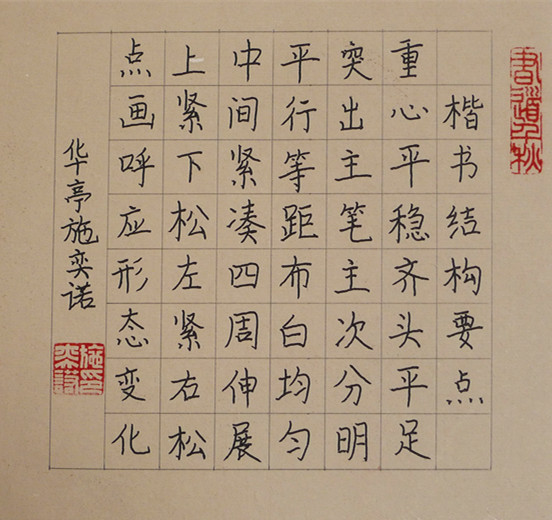 楷书结构要点
重心平稳齐头平足
突出主笔主次分明
平行等距布白均匀
中间紧凑四周伸展
上紧下松左紧右松
点画呼应形态变化
华亭施奕诺
書道千秋
施奕諾印